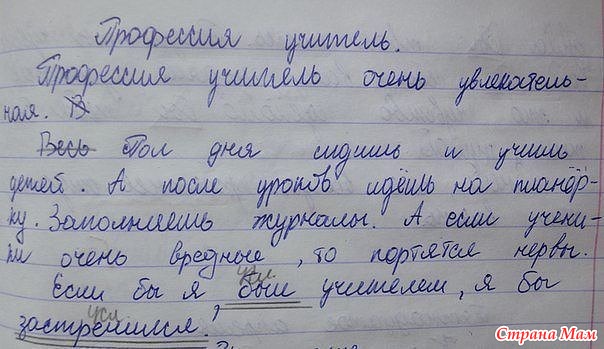 Профессия учитель.
Профессия учитель очень увлекатель-
ная. В
Весь Пол дня сидишь и учишь
детей. А после уроков идёшь на планёр-
ку. Заполняешь журналы. А если учени-
ки очень вредные, то портятся нервы.
усл.
Если бы я был учителем, я бы
усл
застрелился.
Страна Мам